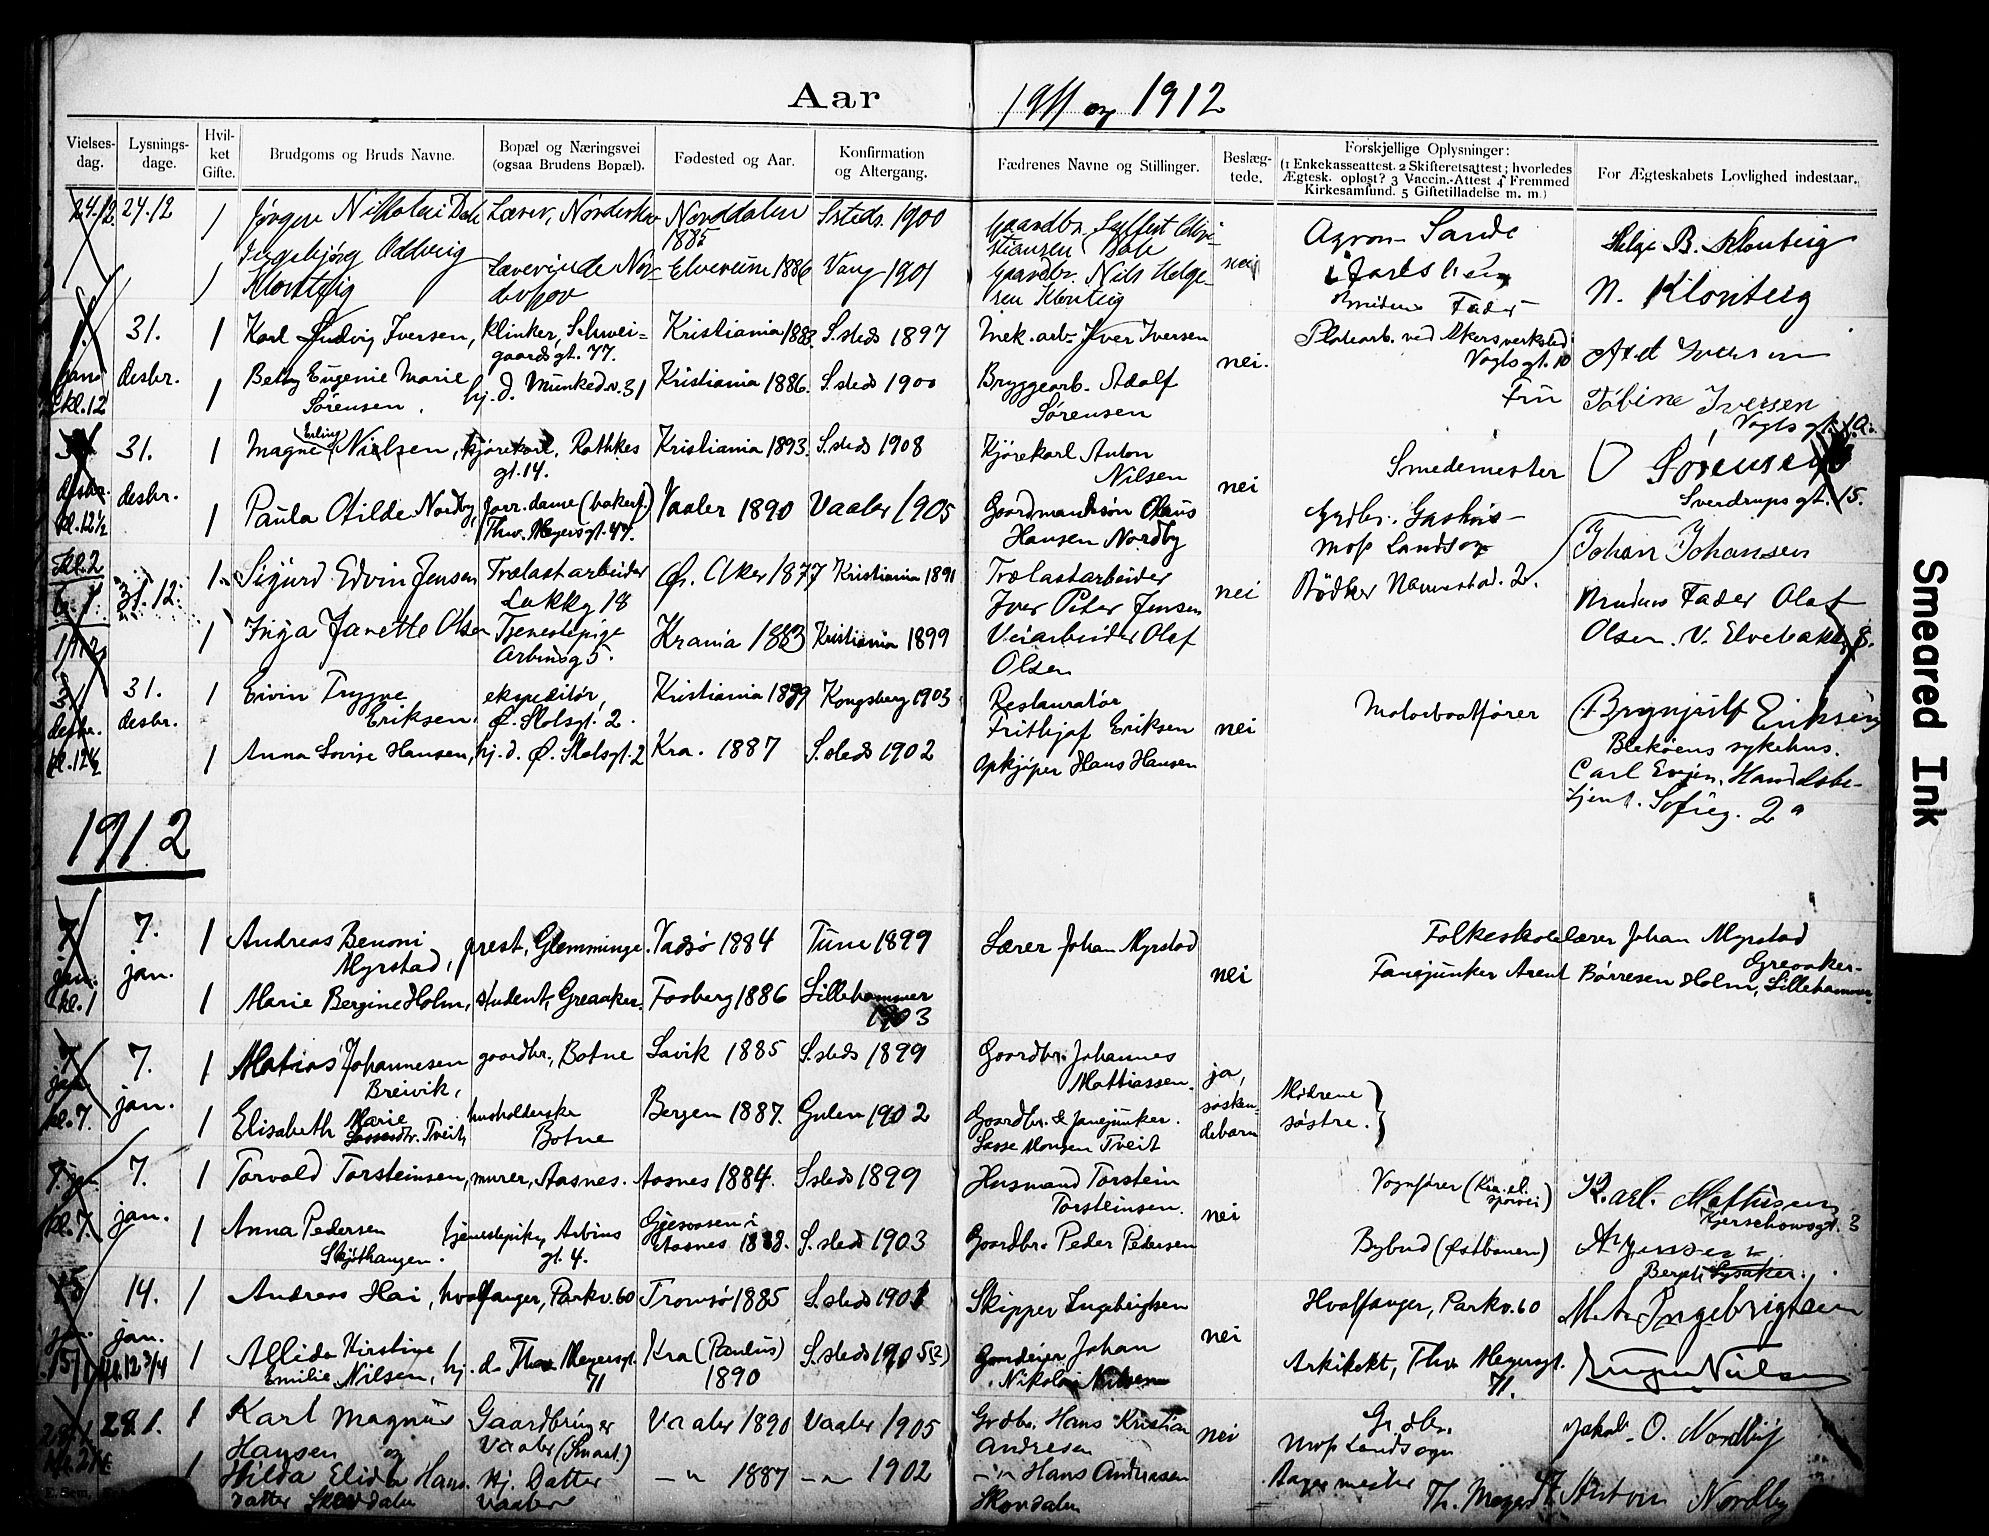 Aar 1911 og 1912
Vielses-dag. Lysnings-dage. Hvil-ket Gifte. Brudgoms og Bruds Navne. Bopæl og Næringsvei (ogsaa Brudens Bopæl). Fødested og Aar. Konfirmation og Altergang. Fædrenes Navne og Stillinger. Beslæg-tede. Forskjellige Oplysninger: (1 Enkekasseattest. 2 Skifteretsattest; hvorledes Ægtesk. opløst? 3 Vaccin.-Attest 4 Fremmed Kirkesamfund. 5 Giftetilladelse m. m.) For Ægteskabets Lovlighed indestaar.
24.12. 24.12 1 Jørgen Nikolai Dale Lærer, Norderhov Norddalen 1885 S.steds 1900 Gaardbr. Syffert Dale nei Agron. Sande i Jarlsberg Helge B. Klonteig
1 Ingebjørg Klonteig Lærerinde Norderhov Elverum 1886 Vang 1901 Gaardbr. Nils Helgesen Klonteig Brudens Fader N. Klonteig
1. jan. kl. 12 31. desbr. 1 Karl Ludvig Iversen, klinker, Schweigaardsgt. 77. Kristiania 1883. S.steds 1897 Mek. arb. Iver Iversen nei. Platearb. ved Akersverksted Vogtsgt. 10 Axel Iversen
1 Betsy Eugenie Marie Sørensen. hj. d. Munkedv. 31 Kristiania 1886. S.steds 1900 Bryggearb. Adolf Sørensen Frû Tobine Iversen Vogtsgt. 10.
desbr. kl. 12½ 31. desbr. 1 Magne Erling Nielsen, kjørekarl, Rathkes gt. 14. Kristiania 1893. S.steds 1908 Kjørekarl Anton Nilsen nei Smedemester Sørensen Sverdrupsgt. 15.
1 Paula Otilde Nordby, forr. dame (bakerf.) Thv. Meyersgt. 47. Vaaler 1890 Vaaler 1905 Gaardmandssøn Olaus Hansen Nordby Grdbr. Moss Landsogn
Kl. 2 31.12. 1 Sigurd Edvin Jensen Trælastarbeider Lakkg 18 Ø. Aker 1877 Kristiania 1891 Trælastarbeider Iver Peter Jensen nei Bødker Nannestad. 2. Johan Johansen
1 Inga Janette Olsen Tjenestepige Arbinsg 5. Krania 1883 Kristiania 1899 Veiarbeider Olaf Olsen Brudens Fader Olaf Olsen. V. Elvebakke 8.
31 desbr. kl. 12½ 31. desbr. 1 Eivin Trygve Eriksen, ekspeditør, Ø. Slotsgt. 2. Kristiania 1889 Kongsberg 1903. Restauratør Frithjof Eriksen nei Motorbaatfører Brynjulf Eriksen Blekøens sykehus.
1 Anna Lovise Hansen, hj. d. Ø. Slotsgt. 2 Kra. 1887 S.steds 1902 Opkjøper Hans Hansen Carl Evjen, Handelsbetjent. Sofieg. 2a
1912
7 jan. kl. 1 7. jan. 1 Andreas Benoni Myrstad, prest, Glemminge. Vadsø 1884 Tune 1899 Lærer Johan Myrstad nei Folkeskolelærer Johan Myrstad Greaaker.
1 Marie Bergine Holm, student, Greaaker. Fosberg 1886 Lillehammer 1903 Fanejunker Arent Børresen Holm, Lillehammer.
7 jan. kl. 7. 7. jan. 1 Matias Johannesen Breivik, gaardbr., Botne Lavik 1885 S.steds 1899 Gaardbr. Johannes Mattiassen. ja, søskendebarn Mødrene søstre.
1 Elisabeth Marie Tveit, husholderske Botne Bergen 1887. Gulen 1902 Gaardbr. & fanejunker. Lasse Monsen Tveit
7. jan. kl. 7. 7. jan. 1 Torvald Torsteinsen, murer, Aasnes. Aasnes 1884. S.steds 1899 Husmand Torstein Torsteinsen. nei Vognfører (Kra. el. sporvei) Karl. Mathisen Kjerschowsgt. 3
1 Anna Pedersen Skjothaugen. tjenestepike, Arbins gt. 4. Gjesaasen i Aasnes 1888. S.steds 1903 Gaardbr. Peder Pedersen Bybud (Østbanen)
15 jan. 15/1 kl. 12 3/4 14. jan. 1 Andreas Hai, hvalfanger, Parkv. 60 Tromsø 1885 S.steds 1901 Skipper Ingebrigtsen nei Hvalfanger, Parkv. 60 Ingebrigtsen
1 Allida Kirstine Emilie Nilsen, hj. d. Thv. Meyersgt. 71 Kra (Paulus) 1890 S.steds 1905(2) Gaardeier Johan Nikolai Nilsen Arkitekt, Thv. Meyersgt. 71. Nielsen
28.1. 1 Karl Magnus Hansen og Gaardbruger Vaaler (Smaal.) Vaaler 1890 Vaaler 1905 Grdbr. Hans Kristian Andresen nei Grdbr. Moss Landsogn Jakob. O. Nordby
1 Hilda Elida Hansdatter Skovdalen Hj. Datter Vaaler — " — 1887 — " — 1902 — " — Hans Andreassen Skovdalen Bagermester Th. Meyersgt 47 Anton Nordby
Smeared Ink